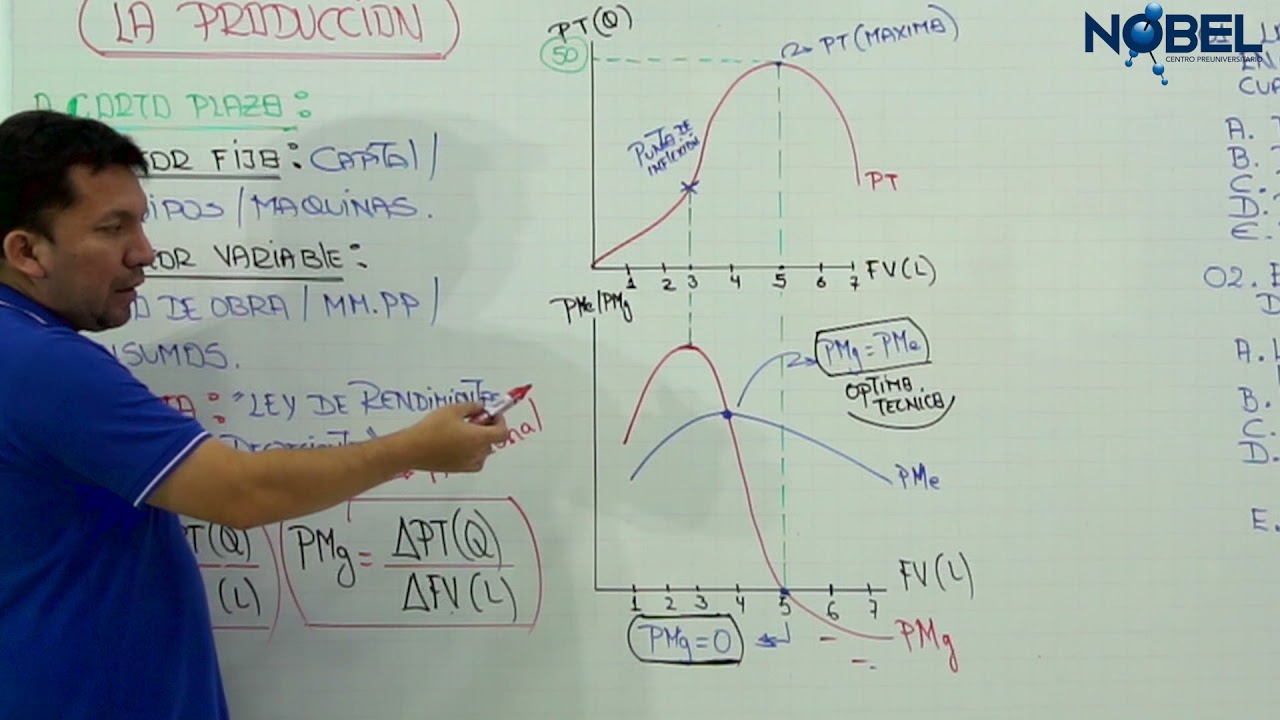 LA PRODUCCION
A CORTO PLAZO:
FIJO: CAPITAL /
/ MAQUINAS.
VARIABLE:
DE OBRA / MM.PP /
"LEY DE RENDIMIENTOS
PT(Q)
(L)
PMg = ΔPT(Q)
ΔFV(L)
PT(Q)
50
PT(MAXIMO)
PUNTO DE
INFLEXION
PT
1 2 3 4 5 6 7 FV(L)
PMe/PMg
PMg = PMe
OPTIMO
TECNICO
PMe
FV(L)
1 2 3 4 5 6 7
PMg = 0
PMg
NOBEL
CENTRO PREUNIVERSITARIO
A.
B.
C.
D.
E.
02.
A.
B.
C.
D.
E.